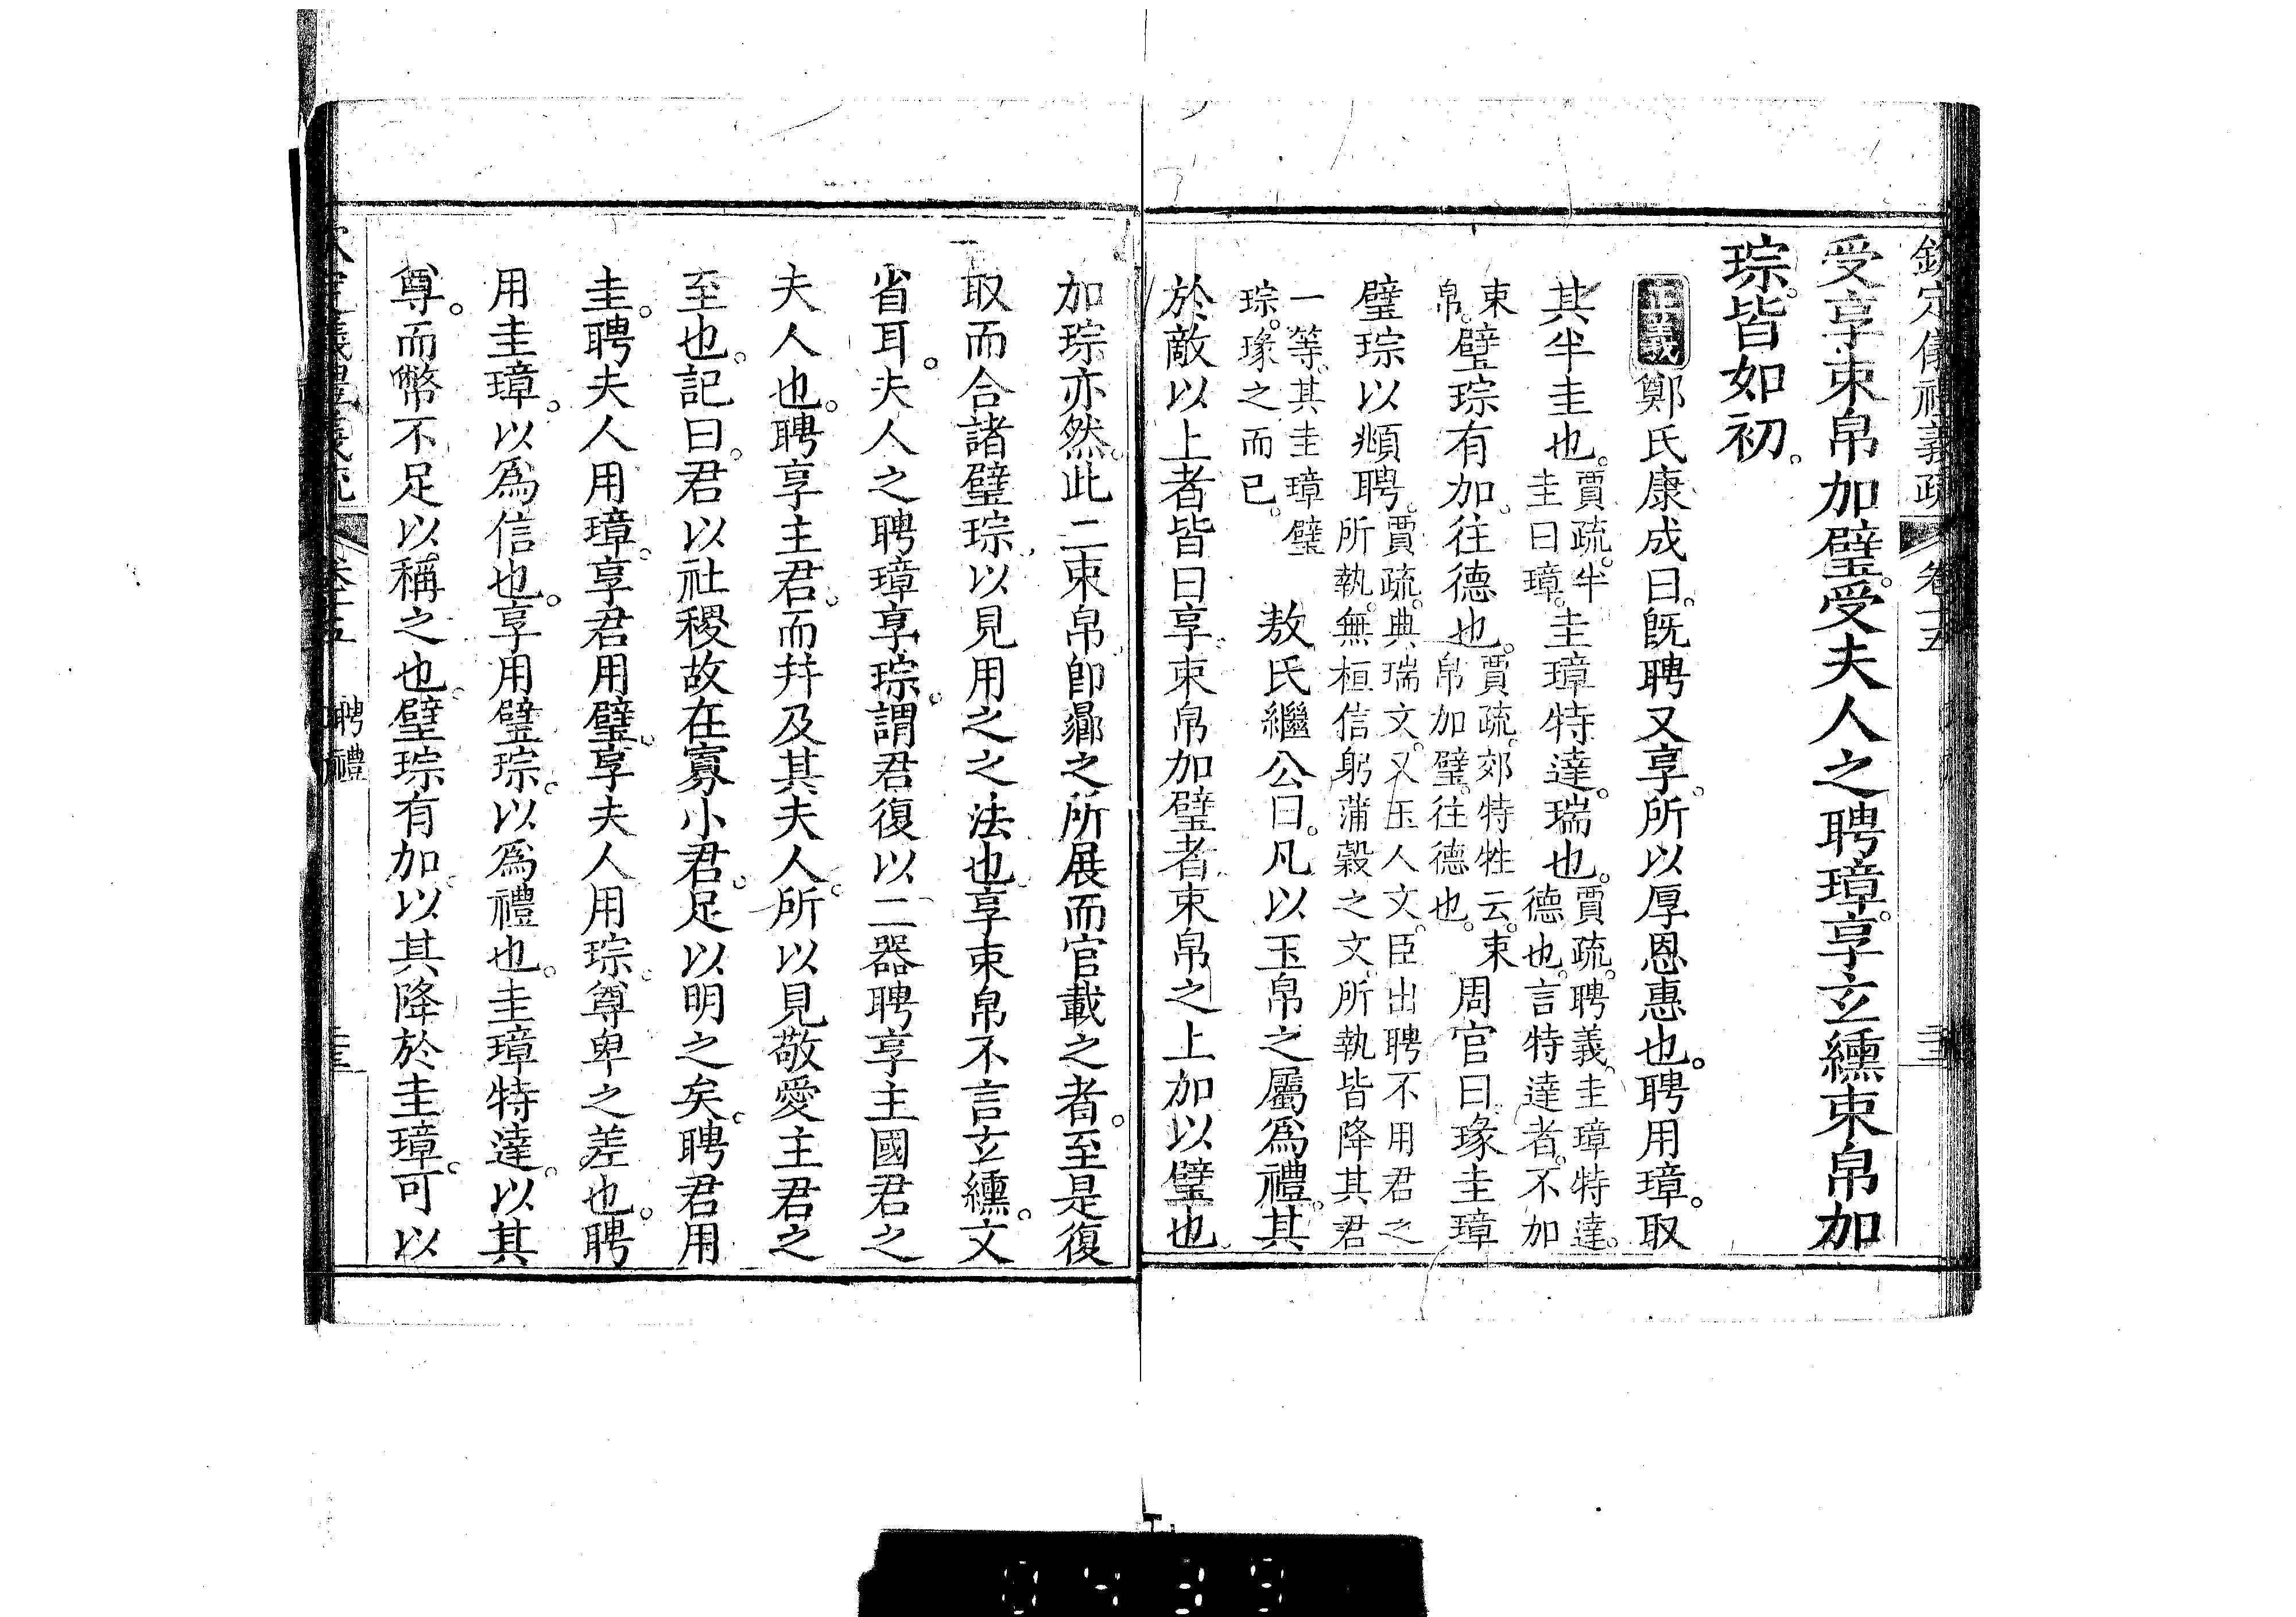 欽定儀禮義疏 卷十五
受享束帛加璧。受夫人之聘璋。享玄纁束帛加
琮。皆如初。
正義 鄭氏康成曰。旣聘又享。所以厚恩惠也。聘用璋。取
其半圭也。賈疏。半圭曰璋。圭璋特達。瑞也。賈疏。聘義。圭璋特達。德也。言特達者。不加
束帛。璧琮有加。往德也。賈疏。郊特牲云。束帛加璧。往德也。周官曰。瑑圭璋
璧琮以頫聘。賈疏。典瑞文。又玉人文。臣出聘不用君之所執。無桓信躬蒲穀之文。所執皆降其君
一等。其圭璋璧琮。瑑之而已。敖氏繼公曰。凡以玉帛之屬爲禮。其
於敵以上者皆曰享。束帛加璧者。束帛之上加以璧也
加琮亦然。此二束帛卽曏之所展而官載之者。至是復
取而合諸璧琮。以見用之之法也。享束帛不言玄纁。文
省耳。夫人之聘璋享琮。謂君復以二器聘享主國君之
夫人也。聘享主君。而幷及其夫人。所以見敬愛主君之
至也。記曰。君以社稷故在寡小君。足以明之矣。聘君用
圭。聘夫人用璋。享君用璧。享夫人用琮。尊卑之差也。聘
用圭璋。以爲信也。享用璧琮。以爲禮也。圭璋特達。以其
尊。而幣不足以稱之也。璧琮有加。以其降於圭璋。可以
聘禮
0439